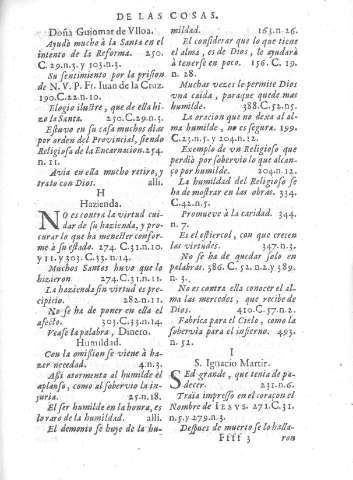 DE LAS COSAS.
Doña Guiomar de Vlloa.
Ayudò mucho à la Santa en el
intento de la Reforma. 250.
C. 29. n. 3. y 103. n. 3.
Su sentimiento por la prision
de N. V. P. Fr. Iuan de la Cruz.
190. C. 22. n. 10.
Elogio ilustre, que de ella hi-
zo la Santa. 250. C. 29. n. 3.
Estuvo en su casa muchos dias
por orden del Provincial, siendo
Religiosa de la Encarnacion. 254.
n. 11.
Avia en ella mucho retiro, y
trato con Dios. alli.
H
Hazienda.
NO es contra la virtud cui-
dar de su hazienda, y pro-
curar lo que ha menester confor-
me à su estado. 274. C. 31. n. 10.
y 11. y 303. C. 33. n. 14.
Muchos Santos huvo que lo
hizieron. 274. C. 31. n. 11.
La hazienda sin virtud es pre-
cipicio. 282. n. 11.
No se ha de poner en ella el
afecto. 303. C. 33. n. 14.
Vease la palabra, Dinero.
Humildad.
Con la omission se viene à ha-
zer necedad. 4. n. 3.
Assi atormenta al humilde el
aplauso, como al sobervio la in-
juria. 25. n. 18.
El ser humilde en la honra, es
lo raro de la humildad. alli.
El demonio se huye de la hu-
mildad. 163. n. 26.
El considerar que lo que tiene
el alma, es de Dios, le ayudarà
à tenerse en poco. 156. C. 19.
n. 28.
Muchas vezes le permite Dios
vna caida, para que quede mas
humilde. 388. C. 52. n. 5.
La oracion que no dexa al al-
ma humilde, no es segura. 199.
C. 23. n. 5. y 204. n. 12.
Exemplo de vn Religioso que
perdiò por sobervio lo que alcan-
çò por humilde. 204. n. 12.
La humildad del Religioso se
ha de mostrar en las obras. 334.
C. 42. n. 5.
Promueve à la caridad. 344.
n. 7.
Es el estiercol, con que crecen
las virtudes. 347. n. 3.
No se ha de quedar solo en
palabras. 386. C. 52. n. 2. y 389.
n. 3.
No es contra ella conocer el al-
ma las mercedes, que recibe de
Dios. 410. C. 57. n. 2.
Fabrica para el Cielo, como la
sobervia para el infierno. 493.
n. 52.
I
S. Ignacio Martir.
SEd grande, que tenia de pa-
decer. 231. n. 6.
Traia impresso en el coraçon el
Nombre de IESVS. 271. C. 31.
n. 5. y 279. n. 3.
Despues de muerto se lo halla-
Ffff 3 ron